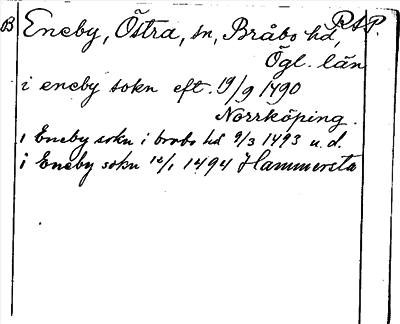 B
R A P.
Eneby, Östra, sn, Bråbo hd,
Ögl. län
i eneby sokn eft. 19/9 1490
Norrköping.
i Eneby sokn i brabo hd 9/3 1493 u.d.
i Eneby sokn 12/1 1494 Hammersta